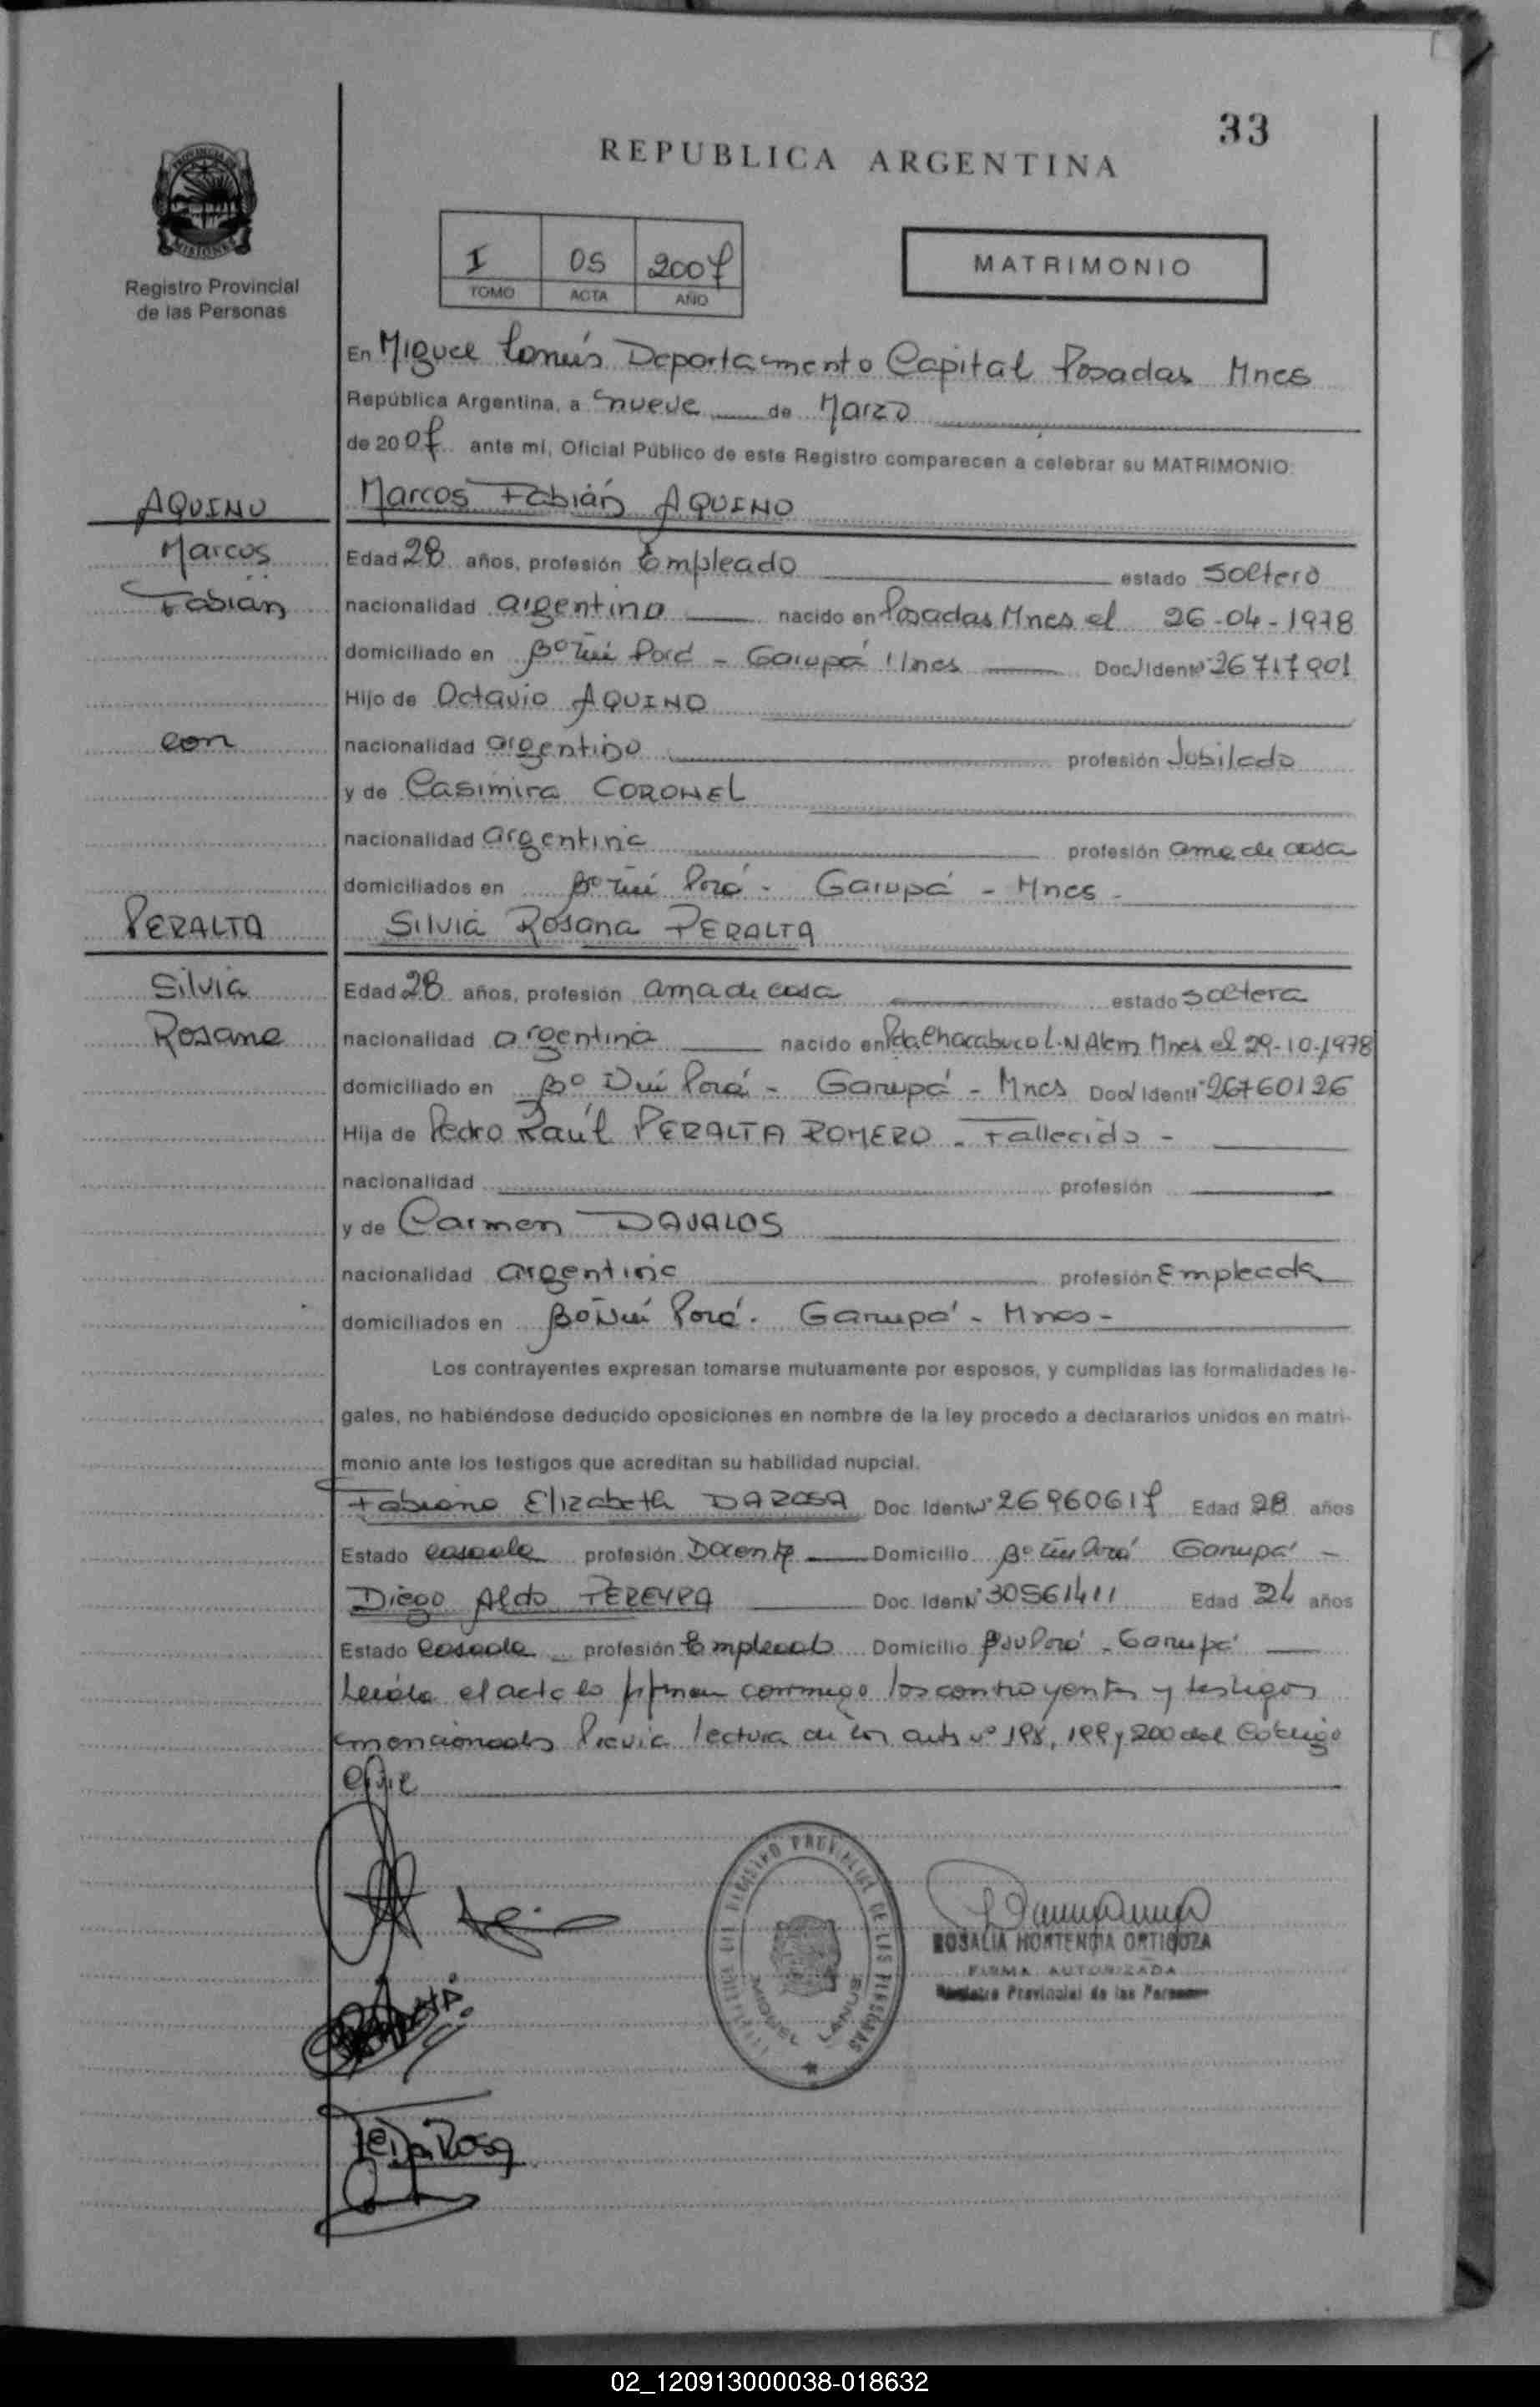 33
REPUBLICA ARGENTINA
PROVINCIA DE
MISIONES
Registro Provincial
de las Personas
I 05 2007
TOMO ACTA AÑO
MATRIMONIO
En Miguel Lanús Departamento Capital Posadas Mnes
República Argentina, a nueve de Marzo
de 2007 ante mí, Oficial Público de este Registro comparecen a celebrar su MATRIMONIO:
AQUINO
Marcos Fabián AQUINO
Marcos
Edad 28 años, profesión Empleado estado Soltero
Fabián
nacionalidad argentino nacido en Posadas Mnes el 26-04-1978
domiciliado en Bº Ñu Porá - Garupá Mnes Doc. Ident Nº 26717901
Hijo de Octavio AQUINO
con
nacionalidad argentino profesión Jubilado
y de Casimira CORONEL
nacionalidad argentina profesión ama de casa
domiciliados en Bº Ñu Porá - Garupá - Mnes -
PERALTA
Silvia Rosana PERALTA
Silvia
Edad 28 años, profesión ama de casa estado soltera
Rosana
nacionalidad argentina nacido en Pda. Chacabuco L.N Alem Mnes el 29-10-1978
domiciliado en Bº Ñu Porá - Garupá - Mnes Doc. Ident Nº 26760126
Hija de Pedro Raúl PERALTA ROMERO - Fallecido -
nacionalidad profesión
y de Carmen DAVALOS
nacionalidad argentina profesión Empleada
domiciliados en Bº Ñu Porá - Garupá - Mnes -
Los contrayentes expresan tomarse mutuamente por esposos, y cumplidas las formalidades le-
gales, no habiéndose deducido oposiciones en nombre de la ley procedo a declararlos unidos en matri-
monio ante los testigos que acreditan su habilidad nupcial.
Fabiana Elizabeth DAROSA Doc. Ident Nº 26960617 Edad 28 años
Estado casada profesión Docente Domicilio Bº Ñu Porá Garupá -
Diego Aldo PEREYRA Doc. Ident Nº 30561411 Edad 24 años
Estado casado profesión Empleado Domicilio Bº Ñu Porá - Garupá
Leída el acta la firman conmigo los contrayentes y testigos
mencionados Previa lectura de los arts nº 198, 199 y 200 del Código
Civil
REGISTRO PROVINCIAL DE LAS PERSONAS
MIGUEL LANUS
ROSALIA HORTENCIA ORTIGOZA
FIRMA AUTORIZADA
Registro Provincial de las Personas
Da Rosa
02_120913000038-018632